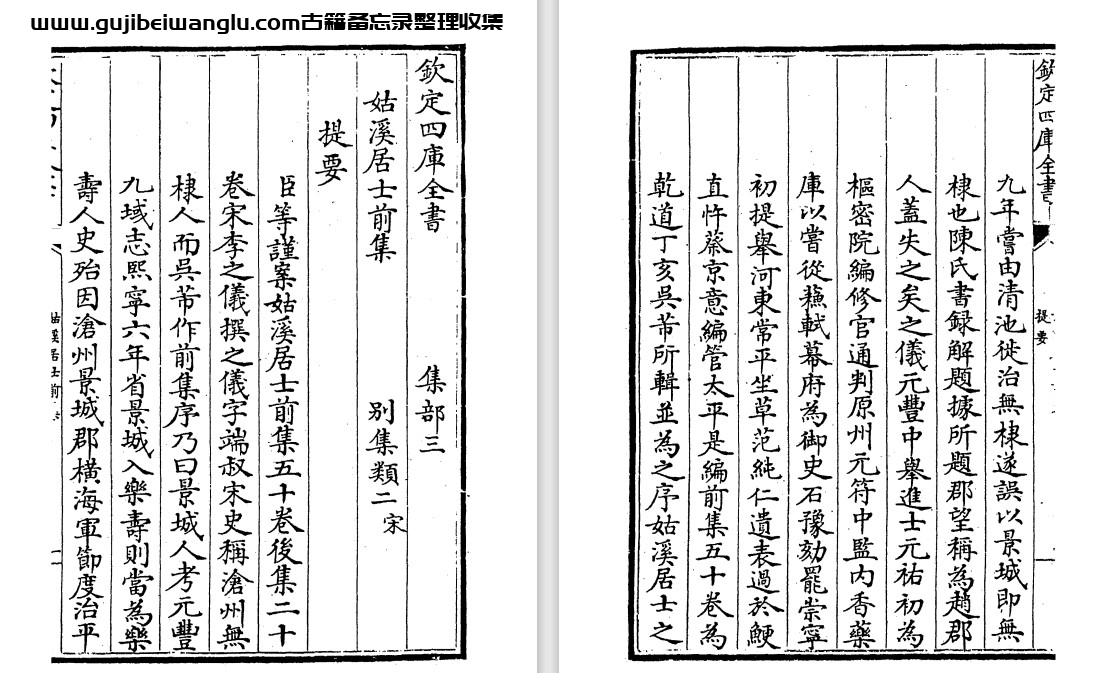 www.gujibeiwanglu.com古籍备忘录整理收集
欽定四庫全書 集部三
姑溪居士前集 別集類二宋
提要
臣等謹案姑溪居士前集五十卷後集二十
卷宋李之儀撰之儀字端叔宋史稱滄州無
棣人而吳芾作前集序乃曰景城人考元豐
九域志熙寧六年省景城入樂壽則當為樂
壽人史殆因滄州景城郡橫海軍節度治平
姑溪居士前
欽定四庫全書
提要
九年嘗由清池徙治無棣遂誤以景城即無
棣也陳氏書録解題據所題郡望稱為趙郡
人蓋失之矣之儀元豐中舉進士元祐初為
樞密院編修官通判原州元符中監內香藥
庫以嘗從蘓軾幕府為御史石豫劾罷崇寧
初提舉河東常平坐草范純仁遺表過於鯁
直忤蔡京意編管太平是編前集五十卷為
乾道丁亥吳芾所輯並為之序姑溪居士之